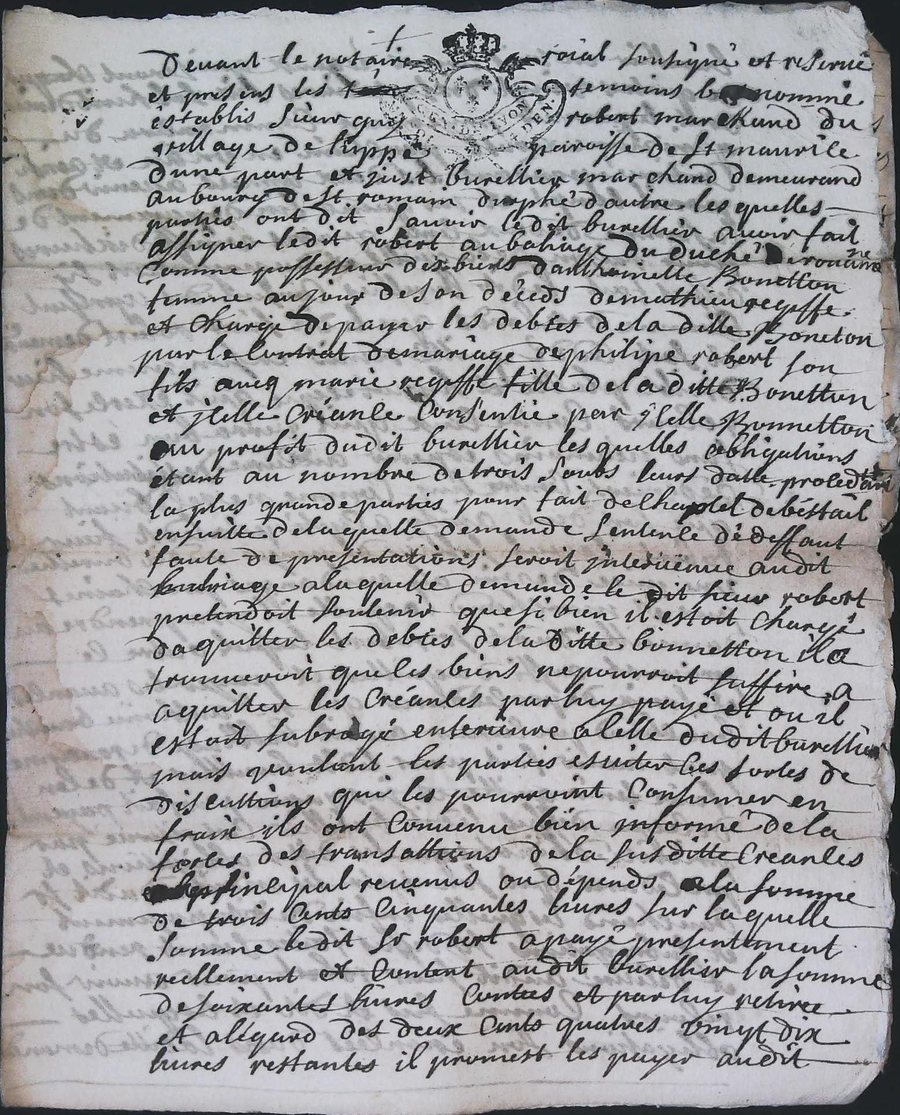 Devant le notaire roial sousigné et reservé
et presens les temoins bas nommé
établis sieur guy robert marchand du
village de luppé paroisse de St maurile
dune part et just burellier marchand demeurand
au bourg de St romain dautre les quelles
parties ont dit sauoir ledit burellier auoir fait
assigner ledit robert au baliage du duché de roüanne
Comme possesseur des biens danthoinette Bonetton
femme au jour de son décéds de mathieu regeffe
et Chargé de payer les debtes de la ditte Boneton
par le Contrat de mariage de philipe robert son
fils aueq marie regeffe fille de la ditte Bonetton
et jcelle Créance Consentie par jcelle Bonnetton
au profit dudit burellier les quelles obligations
étant au nombre de trois soubs leurs datte procedant
la plus grande parties pour fait de Chaptel de béstail
ensuitte de laquelle demande sentence de deffaut
faute de presentations seroit jnteruenue audit
balliage a laquelle demande le dit sieur robert
pretendoit soutenir que si bien il estoit Chargé
daquitter les debtes de la Ditte bonnetton il se
trouueroit que les biens ne pourroit suffire a
aquitter les Créances par luy payé et ou il
estoit subrogé enterieure a Celle dudit burellier
mais voulant les parties esuiter Ces sortes de
discuttions qui les pourroint Consumer en
fraix ils ont Conuenu bien jnformé de la
forces des transattions de la susditte Creances
principal reuenus ou dépends a la somme
de trois Cents Cinquantes liures sur laquelle
somme ledit Sr robert a payé presentement
reellement et Contant audit burellier la somme
de soixantes liures Contées et par luy retirée
et alégard des deux Cents quatres vingt dix
liures restantes il promest les payer audit